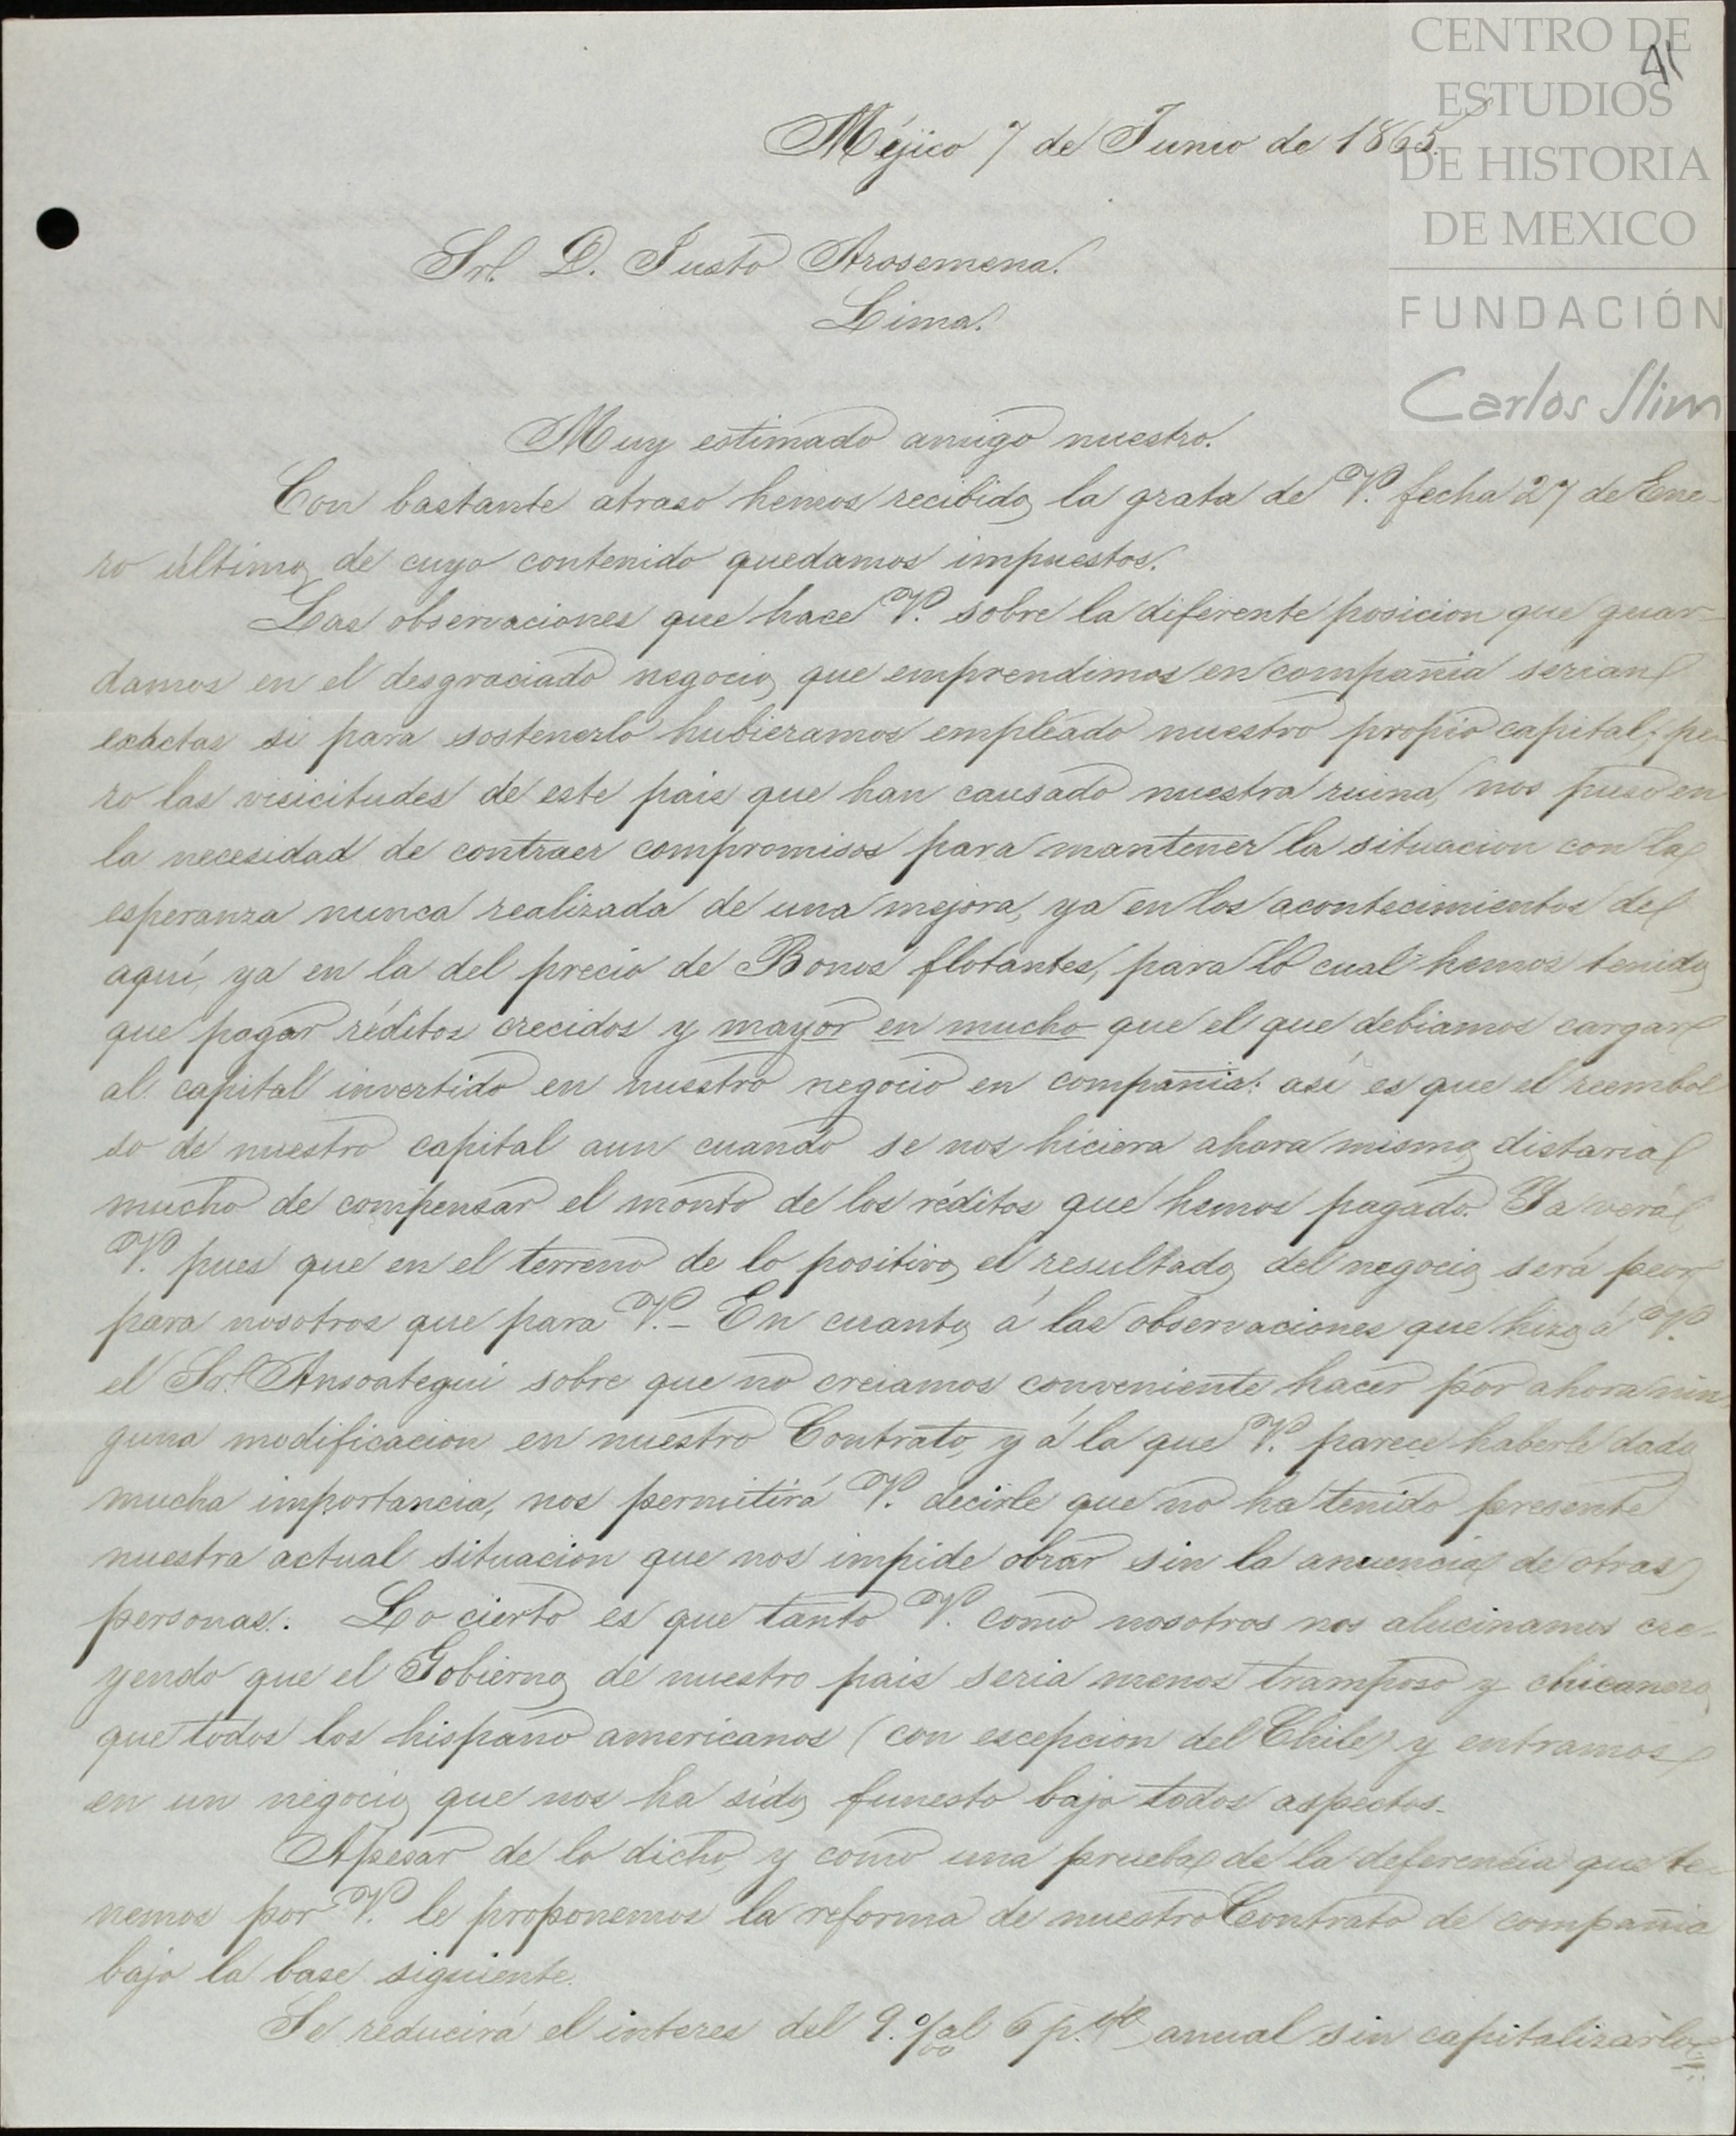 CENTRO DE
ESTUDIOS
DE HISTORIA
DE MEXICO
FUNDACIÓN
Carlos Slim
41
Méjico 7 de Junio de 1865.
Sr. D. Justo Arosemena.
Lima.
Muy estimado amigo nuestro.
Con bastante atraso hemos recibido la grata de V. fecha 27 de Ene-
ro último, de cuyo contenido quedamos impuestos.
Las observaciones que hace V. sobre la diferente posicion que guar-
damos en el desgraciado negocio que emprendimos en compañia serian
exactas si para sostenerlo hubieramos empleado nuestro propio capital; pe-
ro las visicitudes de este pais que han causado nuestra ruina, nos puso en
la necesidad de contraer compromisos para mantener la situacion con la
esperanza nunca realizada de una mejora, ya en los acontecimientos de
aquí, ya en la del precio de Bonos flotantes, para lo cual hemos tenido
que pagar réditos crecidos y mayor en mucho que el que debiamos cargar
al capital invertido en nuestro negocio en compañia: así es que el reembol
so de nuestro capital aun cuando se nos hiciera ahora mismo, distaria
mucho de compensar el monto de los réditos que hemos pagado. Ya verá
V. pues que en el terreno de lo positivo, el resultado del negocio será peor
para nosotros que para V. - En cuanto á las observaciones que hizo á V.
el Sr. Ansoategui sobre que no creiamos conveniente hacer por ahora nin
guna modificacion en nuestro Contrato, y á la que V. parece haberle dado
mucha importancia, nos permitirá V. decirle que no ha tenido presente
nuestra actual situacion que nos impide obrar sin la anuencia de otras
personas. Lo cierto es que tanto V. como nosotros nos alucinamos cre-
yendo que el Gobierno de nuestro pais seria menos tramposo y chicanero
que todos los hispano americanos (con escepcion del Chile) y entramos
en un negocio que nos ha sido funesto bajo todos aspectos.
Apesar de lo dicho, y como una prueba de la deferencia que te-
nemos por V. le proponemos la reforma de nuestro Contrato de compañia
bajo la base siguiente.
Se reducirá el interes del 9. % al 6 p.% anual sin capitalizarlo